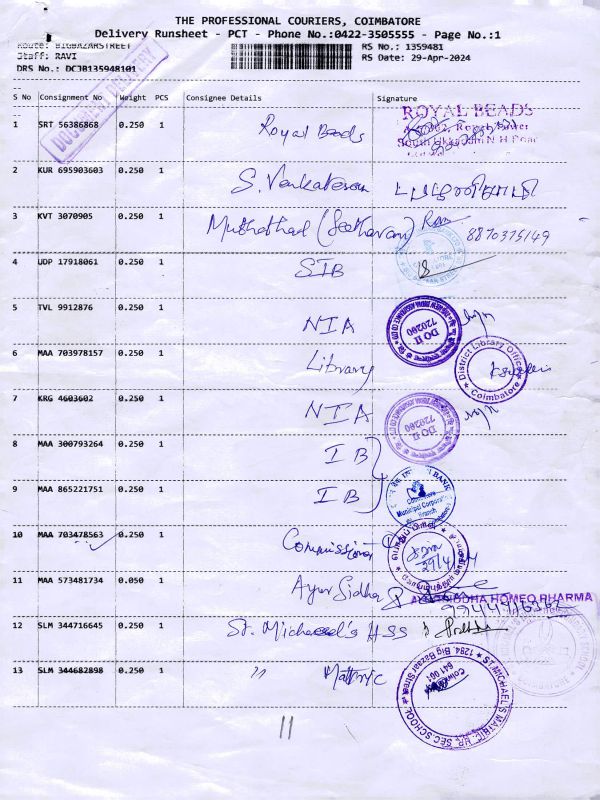 THE PROFESSIONAL COURIERS, COIMBATORE
Delivery Runsheet - PCT - Phone No.:0422-3505555 - Page No.:1
Route: BIGBAZARSTREET
Staff: RAVI
DRS No.: DCJB135948101
RS No.: 1359481
RS Date: 29-Apr-2024
DOCUMENT DELIVERY
S No Consignment No Weight PCS Consignee Details Signature
1 SRT 56386868 0.250 1 Royal Beads
ROYAL BEADS
2 KUR 695903603 0.250 1 S. Venkatesan
3 KVT 3070905 0.250 1 Muthothad (Seetharam) Ram 8870375149
4 UDP 17918061 0.250 1 SIB
5 TVL 9912876 0.250 1 NIA
DO II
720200
6 MAA 703978157 0.250 1 Library
District Library Officer
Coimbatore
7 KRG 4603602 0.250 1 NIA
DO II
720200
8 MAA 300793264 0.250 1 IB
9 MAA 865221751 0.250 1 IB
INDIAN BANK
Coimbatore
Municipal Corporation
Branch
10 MAA 703478563 0.250 1
11 MAA 573481734 0.050 1 Ayur Sidha
SIDDHA HOMEO PHARMA
12 SLM 344716645 0.250 1 St. Michael's HSS
13 SLM 344682898 0.250 1 " Matric
ST.MICHAEL'S MATRIC. HR. SEC SCHOOL
1294, Big Bazaar Street,
641 001
11